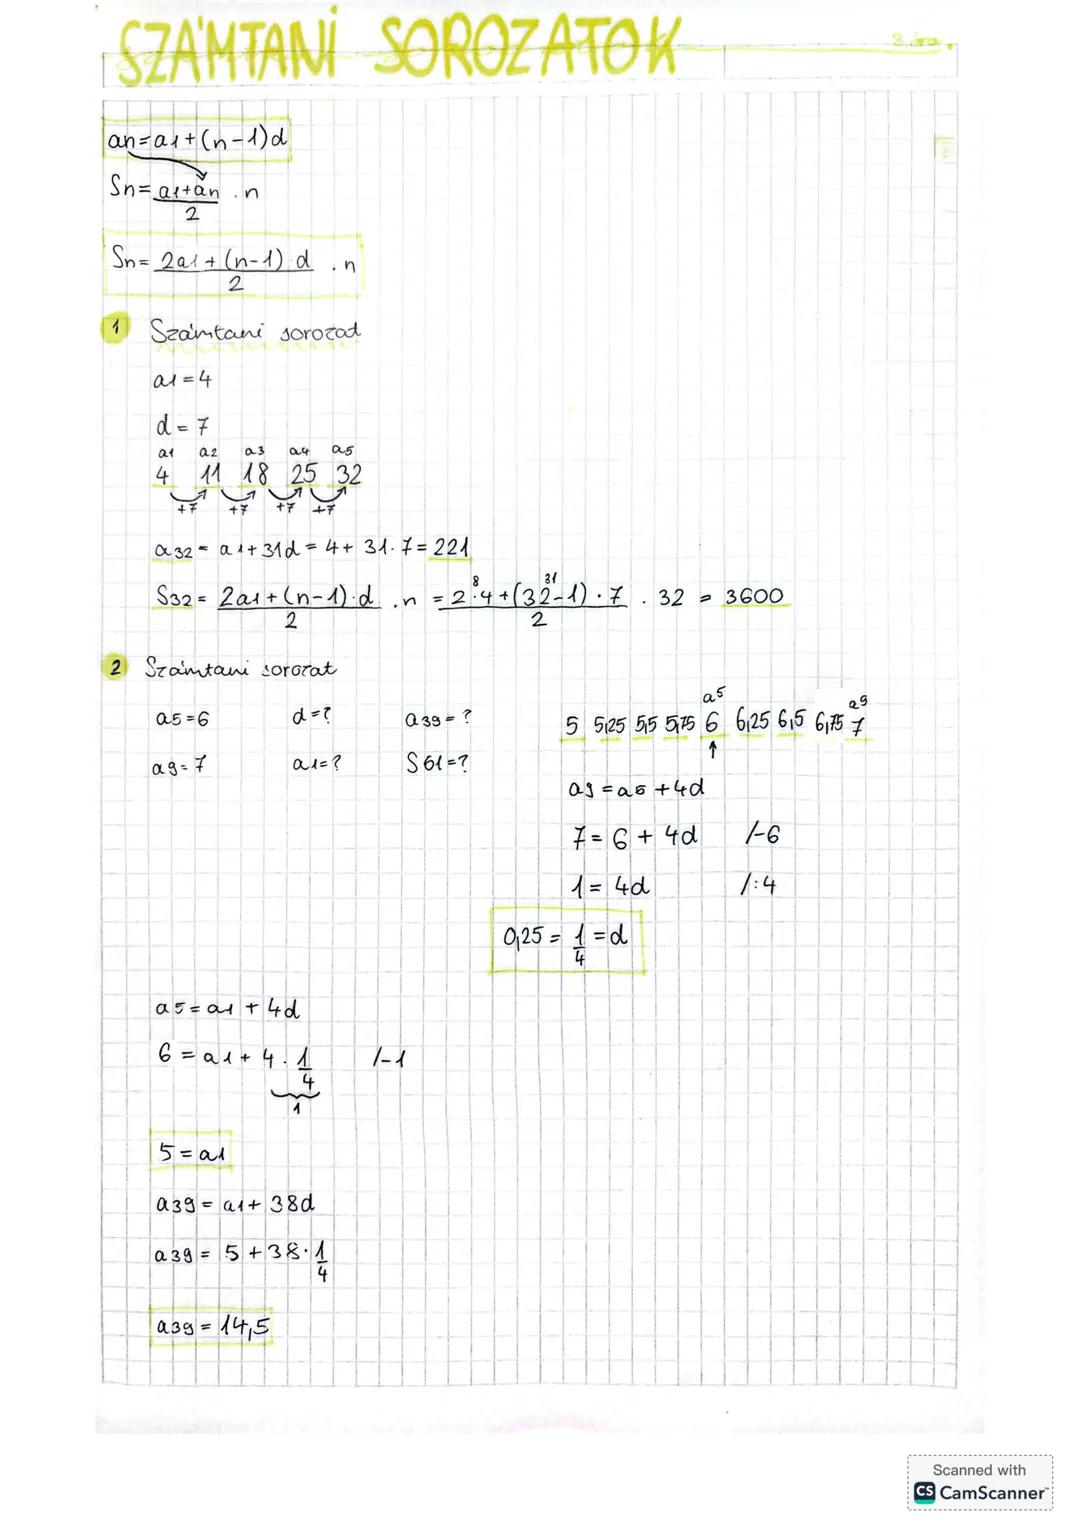 SZÁMTANI SOROZATOK
3. óra.
an=a1+(n-1)d
Sn= a1+an/2 . n
Sn= 2a1+(n-1).d/2 . n
1 Számtani sorozad
a1=4
d=7
a1 a2 a3 a4 a5
4 11 18 25 32
+7 +7 +7 +7
a32 = a1+31d = 4+ 31.7= 221
8 31
S32= 2a1+(n-1).d/2 .n = 2.4+(32-1).7/2 . 32 = 3600
2 Számtani sorozat
a5=6 d=? a39=?
a9=7 a1=? S61=?
a5 a9
5 5,25 5,5 5,75 6 6,25 6,5 6,75 7
↑
a9=a5+4d
7=6+4d /-6
1=4d /:4
0,25 = 1/4 =d
a5=a1+4d
6=a1+4.1/4 /-1
1
5=a1
a39= a1+38d
a39= 5+38.1/4
a39= 14,5
Scanned with
CS CamScanner™